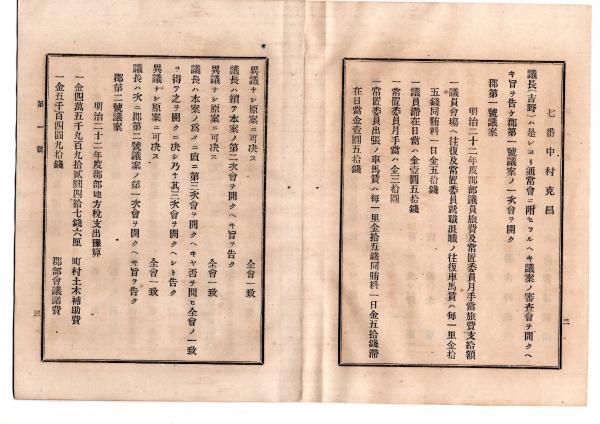 七番 中村克昌
議長(吉野)ハ是レヨリ通常會ニ附セラルヘキ議案ノ審査會ヲ開クヘ
キ旨ヲ告ケ郡第一號議案ノ一次會ヲ開ク
郡第一號議案
明治二十二年度郡部議員旅費及常置委員月手當旅費支給額
一議員會場ヘ往復及常置委員就職退職ノ往復車馬賃ハ每一里金拾
五錢同賄料一日金五拾錢
一議員滯在日當ハ金壹圓五拾錢
一常置委員月手當ハ金三拾圓
一常置委員出張ノ車馬賃ハ每一里金拾五錢同賄料一日金五拾錢滯
在日當金壹圓五拾錢
二
異議ナシ原案ニ可决ス 全會一致
議長ハ續テ本案ノ第二次會ヲ開クヘキ旨ヲ告ク
異議ナシ原案ニ可决ス 全會一致
議長ハ本案ノ爲メニ直ニ第三次會ヲ開クヘキヤ否ヲ問ヒ全會ノ一致
ヲ得テ之ヲ開クニ决シ乃チ其三次會ヲ開クヘシト告ク
異議ナシ原案ニ可决ス 全會一致
議長ハ次ニ郡第二號議案ノ第一次會ヲ開クヘキ旨ヲ告ク
郡第二號議案
明治二十二年度郡部地方稅支出豫算
一金四萬五千九百九拾貳圓四拾七錢六厘 町村土木補助費
一金五千百四圓九拾錢 郡部會議諸費
第一號
三